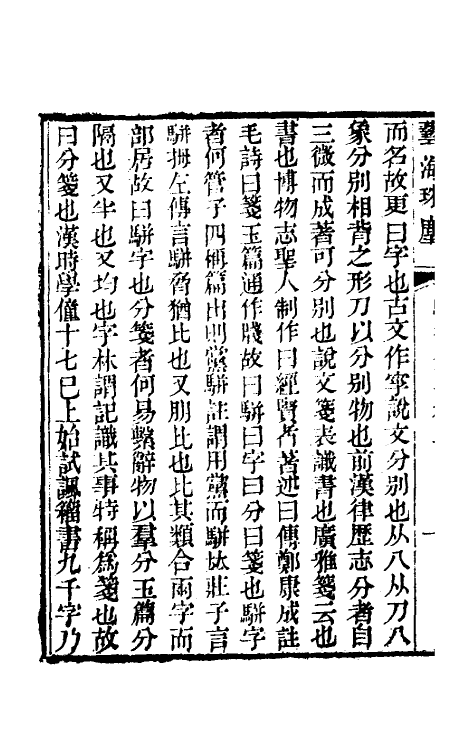 藝海珠塵
而名故更曰字也古文作㝊說文分別也从八从刀八
象分別相背之形刀以分別物也前漢律歷志分者自
三微而成著可分別也說文箋表識書也廣雅箋云也
書也博物志聖人制作曰經賢者著述曰傳鄭康成註
毛詩曰箋玉篇通作牋故曰駢曰字曰分曰箋也駢字
者何管子四稱篇出則黨駢註謂用黨而駢
莊子言
駢拇左傳言駢脅猶比也又刖比也比其類合兩字而
部居故曰駢字也分箋者何易繫辭物以羣分玉篇分
隔也又半也又均也字林謂記識其事特稱爲箋也故
曰分箋也漢時學僮十七巳上始試諷籀書九千字乃